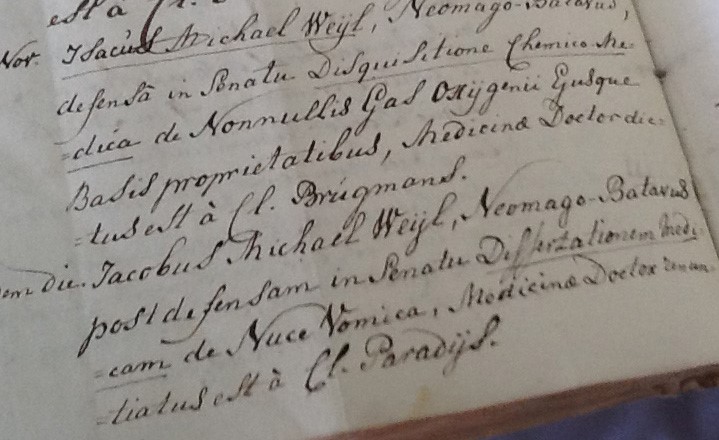 est à Cl.
Nov. Isacus Michael Weijl, Neomago-Batavus,
defensâ in Senatu Disquisitione Chemico Me-
=dica de Nonnullis Gas Oxijgenii Ejusque
Basis proprietatibus, Medicinæ Doctor dic=
=tus est à Cl. Brúgmans.
die. Jacobus Michael Weijl, Neomago-Batavus
post defensam in Senatu Dissertationem Medi=
=cam de Nuce Vomica, Medicinæ Doctor renun=
=tiatus est à Cl. Paradijs.